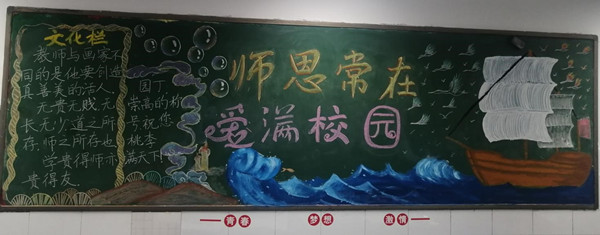 文化栏
教师与画家不
同的是他要创造
真善美的活人
无贵无贱无
长无少道之所
存师之所存也
学贵得师亦
贵得友
园丁
崇高的称
号祝您
桃李
满天下
师思常在
爱满校园
青春
梦想
激情